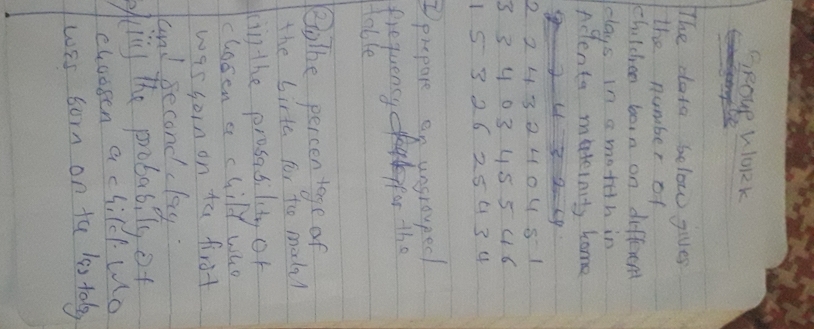 GROUP WORK
The data below gives
the number of
children born on different
days in a month in
Adenta maternity home
2 2 4 3 2 4 0 4 5 1
3 3 4 0 3 4 5 5 4 6
1 5 3 2 6 2 5 4 3 4
1 prepare an ungrouped
frequency the
table
2 i) The percentage of
the birth for te
ii) the probability of
chosen a child who
was born on te first
and second day.
(iii) The probability of
choosen a child who
was born on te last day